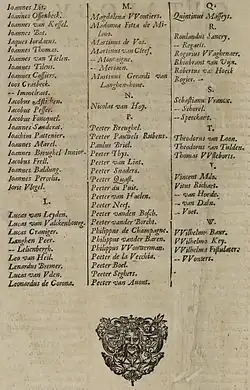 Ioannes Lis.
Ioannes Ossenbeeck.
Ioannes van Kessel.
Ioannes Bot.
Iaques Iordaens.
Ioannes Thomas.
Ioannes van Tielen.
Ioannes Tilens.
Ioannes Cossiers.
Ioos Craesbeck.
-- Immenraet.
Iacobus
Iacobus Pesser.
Iacobus Fouquet.
Ioannes Sanderat.
Ioachim Pattenier.
Ioannes Marel.
Ioannes Breughel Iunior.
Iacobus Freil.
Ioannes Baldung.
Ioannes Porcelis.
Ioris Vlegel.
L.
Lucas van Leyden.
Lucas van Valckenborg.
Lucas Craniger.
Langhen Peer.
-- Lelienbergh.
Leo van Heil.
Lenardus Bremer.
Lucas van Vden.
Leonardus de Corona.
M.
Magdalena VVoutiers.
Madonna Feta de Mi-
lone.
Martinus de Vos.
Martinus van Cleef.
-- Montagnie.
-- Mernicen.
Martinus Gerardi van
Langhen-hone.
N.
Nicolas van Hoy.
P.
Peeter Breughel.
Peeter Pauwels Rubens.
Paulus Bril.
Peeter Thys.
Peeter van Lint.
Peeter Snaders.
Peeter Quast.
Peeter du Puis.
Peeter van Haelen.
Peeter Neefs.
Peeter vanden Bosch.
Peeter vander Borcht.
Philippus de Champagne.
Philippus vander Baren.
Philippus VVouwerman.
Peeter de la Vecchia.
Peeter Boel.
Peeter Seghers.
Peeter van Avont.
Q.
Quintinus Massys.
R.
Roelandus Savery.
-- Regaris.
Rogerus VVaghenaer.
Robertus van Hoeck
Rogier --
S.
Sebastianus Francx.
-- Scharel.
-- Speeckaert.
T.
Theodorus van Loon.
Theodorus van Tulden.
Thomas VVilleborts.
V.
Vincent Malo.
Vitus Richart.
-- van Hoorde.
-- van Dalm.
-- Voet.
W.
VVilhelmus Baur.
VVilhelmus Key.
-- VVouters.